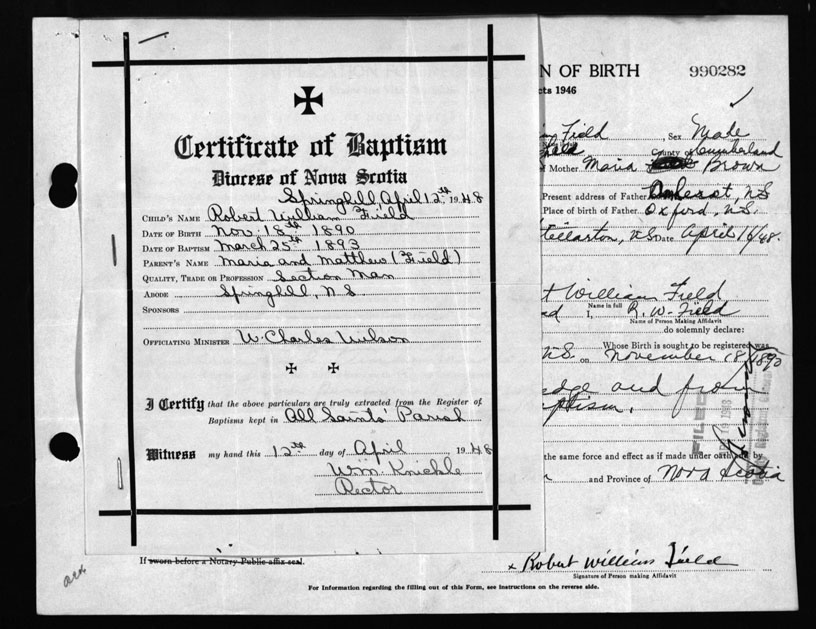 Certificate of Baptism
Diocese of Nova Scotia
Springhill April 12th 1948
CHILD'S NAME Robert William Field
DATE OF BIRTH Nov. 18th 1890
DATE OF BAPTISM March 25th 1893
PARENT'S NAME Maria and Matthew (Field)
QUALITY, TRADE OR PROFESSION Section Man
ABODE Springhill, N S
SPONSORS
OFFICIATING MINISTER W. Charles Wilson
I Certify that the above particulars are truly extracted from the Register of
Baptisms kept in All Saints' Parish
Witness my hand this 12th day of April 1948
Wm Knickle
Rector
N OF BIRTH 990282
cts 1946
Field, Sex Male
County of Cumberland
of Mother Maria Brown
Present address of Father Amherst, NS
Place of birth of Father Oxford, N.S.
Stellarton, NS Date April 16/48.
t William Field
Name in full
I, R. W. Field
Name of Person Making Affidavit
do solemnly declare:
Whose Birth is sought to be registered was
N.S. on November 18/1890
edge and from
aptism.
FILED
the same force and effect as if made under oath and by
and Province of Nova Scotia
If sworn before a Notary Public affix seal.
x Robert William Field
Signature of Person making Affidavit
For Information regarding the filling out of this Form, see Instructions on the reverse side.